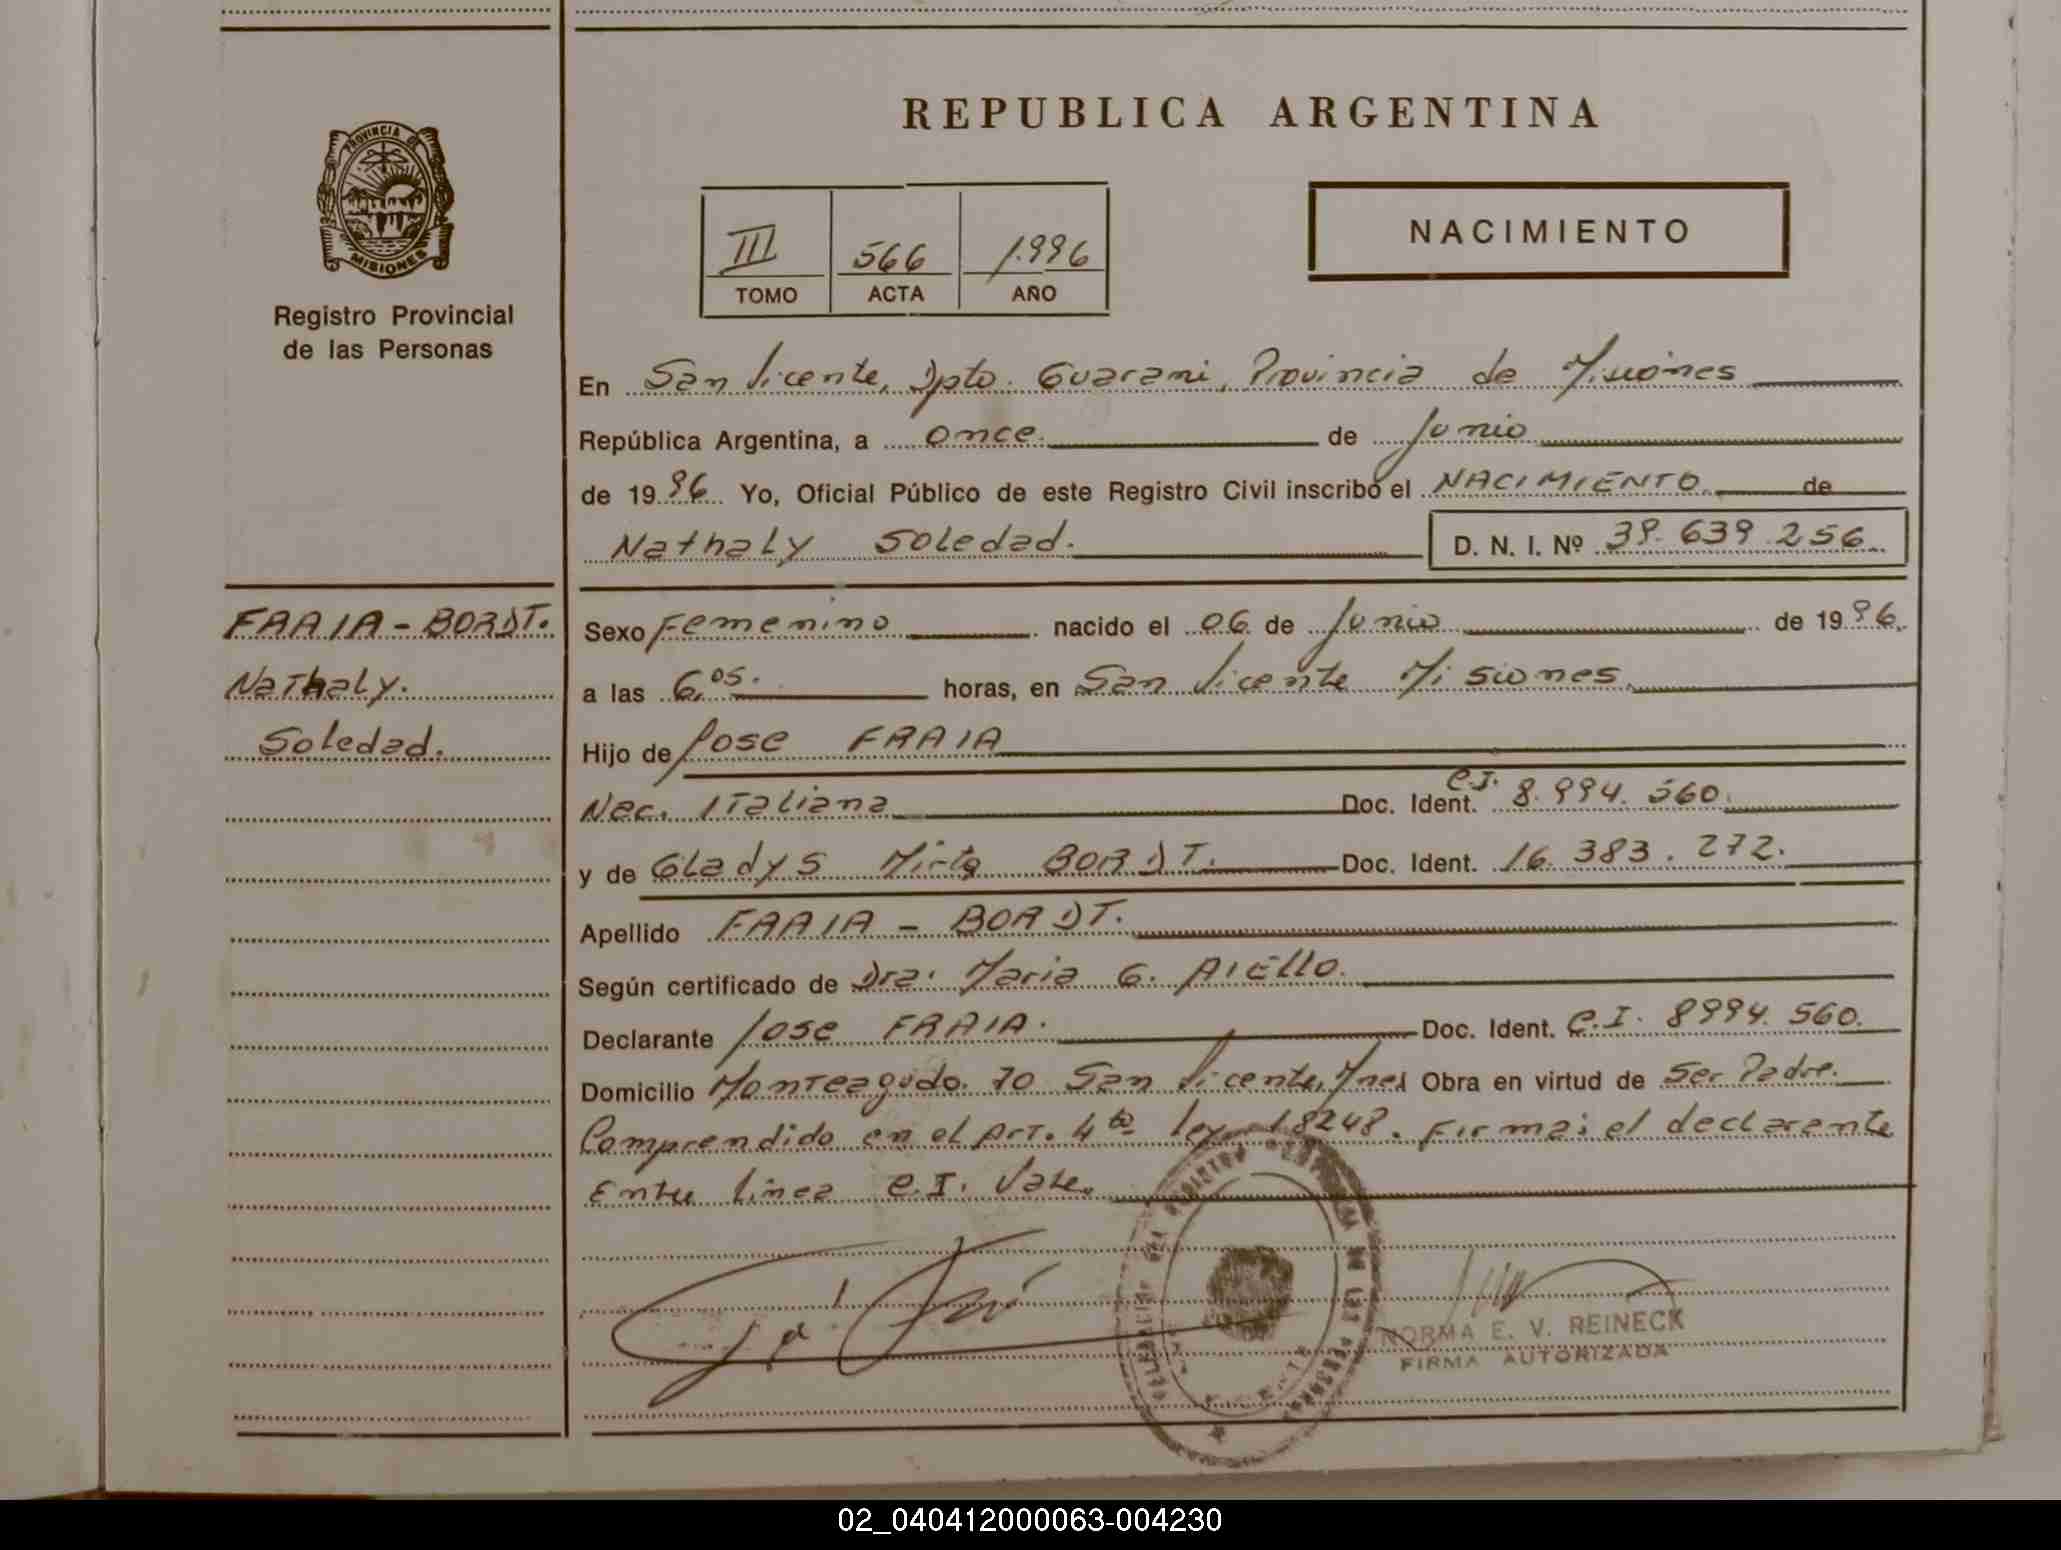 PROVINCIA DE
MISIONES
Registro Provincial
de las Personas
REPUBLICA ARGENTINA
III 566 1.996
TOMO ACTA AÑO
NACIMIENTO
En San Vicente, Dpto. Guarani, Provincia de Misiones
República Argentina, a once. de Junio
de 1996 Yo, Oficial Público de este Registro Civil inscribo el NACIMIENTO de
Nathaly Soledad. D. N. I. Nº 39.639.256
FRAIA - BORDT.
Nathaly.
Soledad.
Sexo Femenino nacido el 06 de Junio de 1996.
a las 6,05. horas, en San Vicente Misiones.
Hijo de Jose FRAIA
Nac. Italiana Doc. Ident. C.I. 8.994.560.
y de Gladys Mirta BORDT. Doc. Ident. 16.383.272.
Apellido FRAIA - BORDT.
Según certificado de Dra. Maria G. AIELLO.
Declarante Jose FRAIA. Doc. Ident. C.I. 8994.560.
Domicilio Monteagudo 70 San Vicente, Mnes Obra en virtud de Ser Padre.
Comprendido en el Art. 4to ley 18248. Firma: el declarante
Entre linea C.I. Vale.
NORMA E. V. REINECK
FIRMA AUTORIZADA
02_040412000063-004230